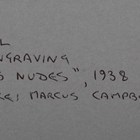 L
NGRAVING
S NUDES", 1938
CCI MARCUS CAMPB